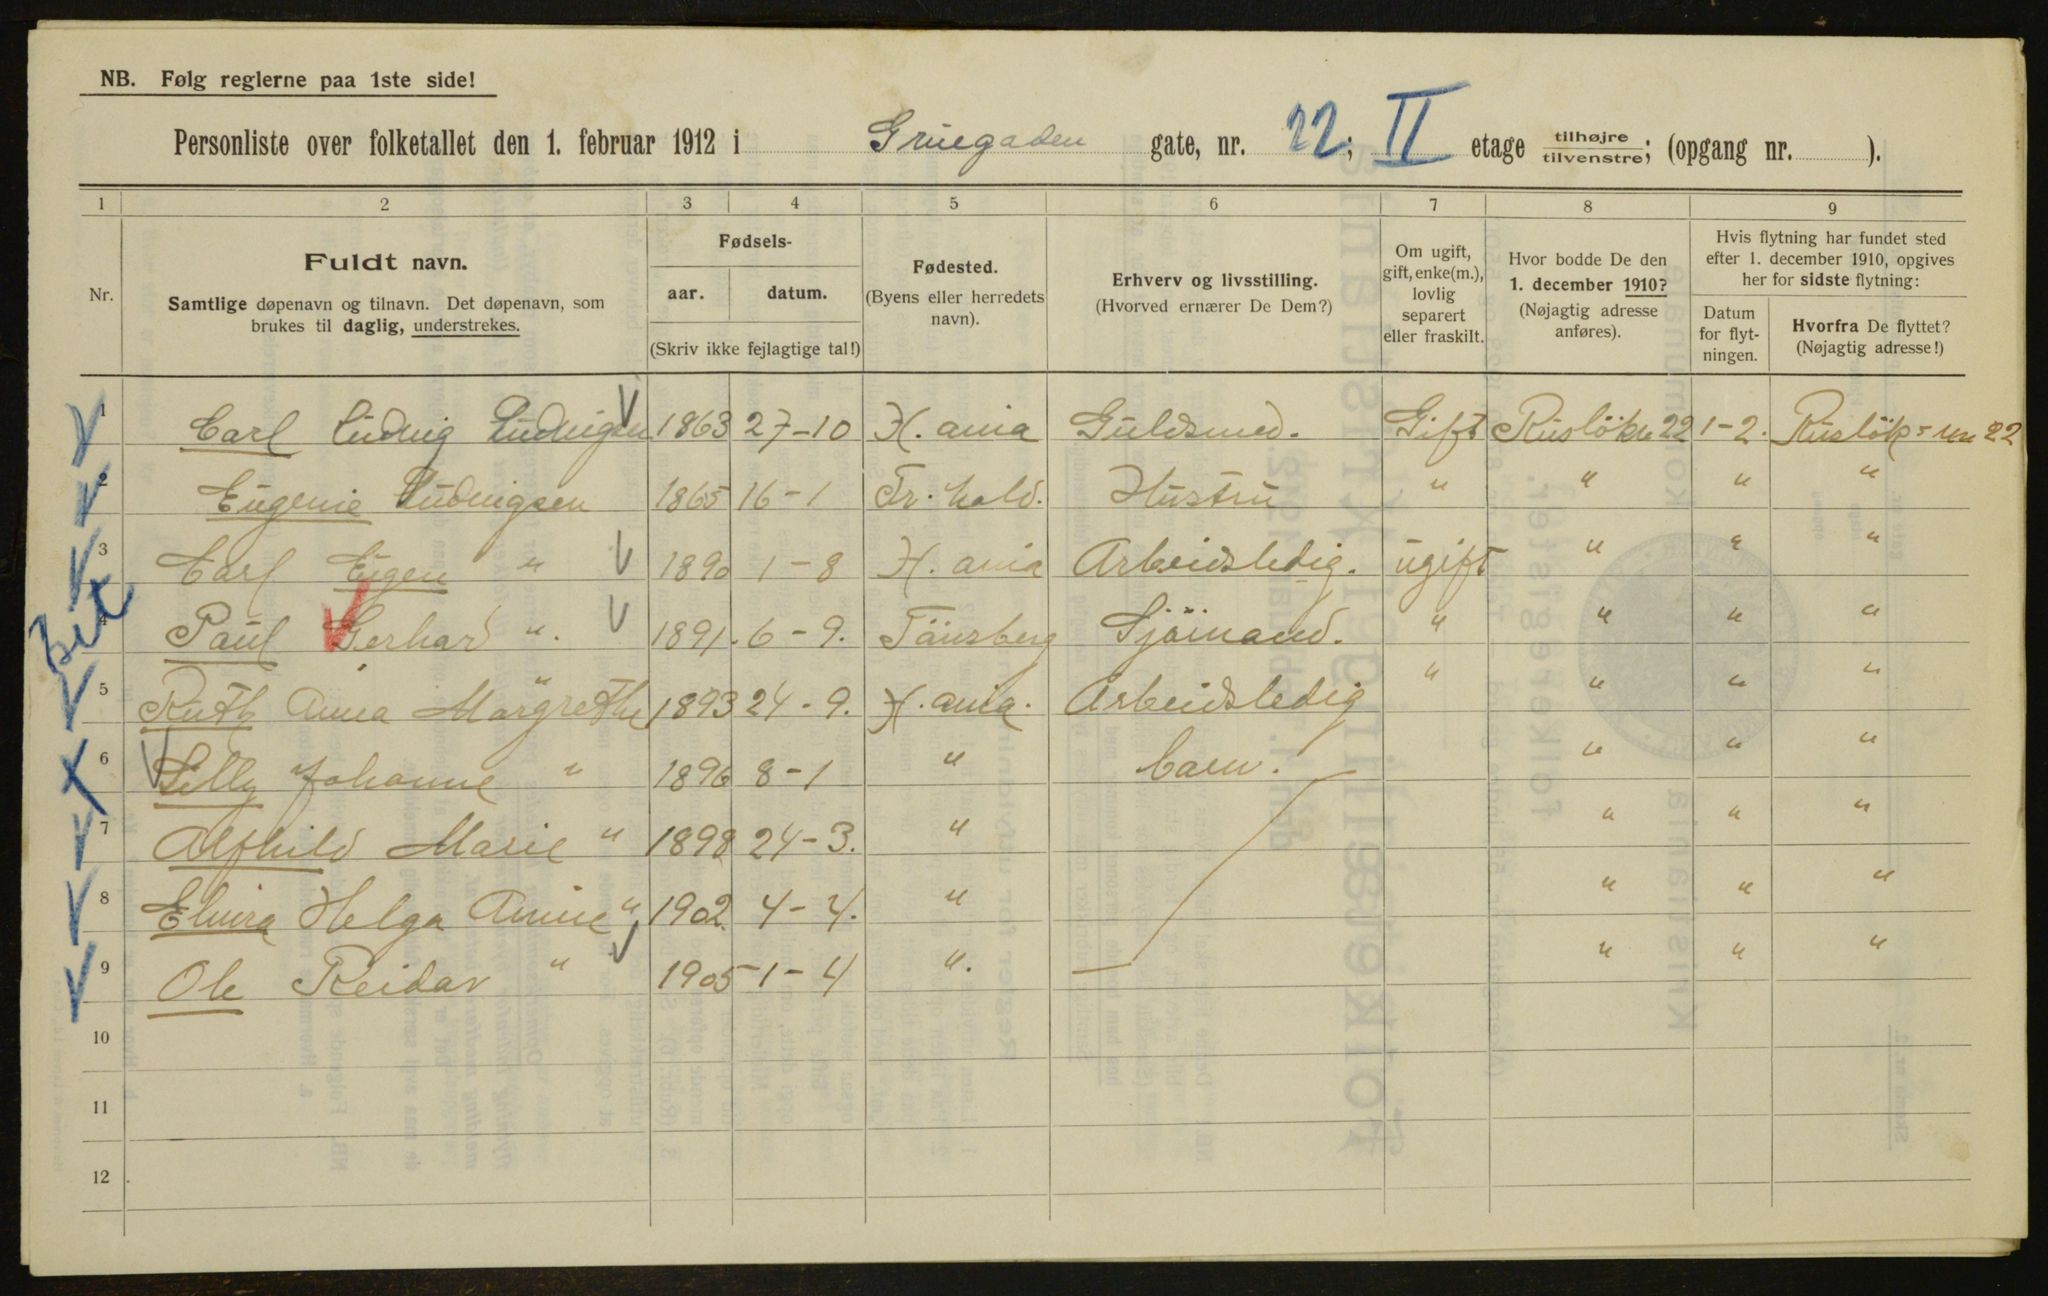 NB. Følg reglerne paa 1ste side!
Personliste over folketallet den 1. februar 1912 i Gruegaden gate, nr. 22; II etage tilhøjre tilvenstre; (opgang nr. ).
1 2 3 4 5 6 7 8 9
Nr.
Fuldt navn.
Samtlige døpenavn og tilnavn. Det døpenavn, som
brukes til daglig, understrekes.
Fødsels-
aar. datum.
(Skriv ikke fejlagtige tal!)
Fødested.
(Byens eller herredets
navn).
Erhverv og livsstilling.
(Hvorved ernærer De Dem?)
Om ugift,
gift, enke(m.),
lovlig
separert
eller fraskilt.
Hvor bodde De den
1. december 1910?
(Nøjagtig adresse
anføres).
Hvis flytning har fundet sted
efter 1. december 1910, opgives
her for sidste flytning:
Datum
for flyt-
ningen.
Hvorfra De flyttet?
(Nøjagtig adresse!)
1 Carl Ludvig Ludvigsen 1863 27-10 K. ania Guldsmed. Gift Rusløkv 22 1-2. Rusløk-vn 22
2 Eugenie Ludvigsen 1865 16-1 Fr. hald. Hustru " " " "
3 Carl Eigen " 1890 1-8 K. ania Arbeidsledig. ugift " " "
4 Paul Gerhard ". 1891. 6-9. Tönsberg Sjömand. " " " "
5 Ruth Anna Margrethe " 1893 24-9. K. ania. Arbeidsledig " " " "
6 Lilly Johanne " 1896 8-1 " barn. " " "
7 Alfhild Marie " 1898 24-3. " " " "
8 Elvira Helga Anine " 1902. 4-4. " " " "
9 Ole Reidar " 1905 1-4 ". " " "
10
11
12